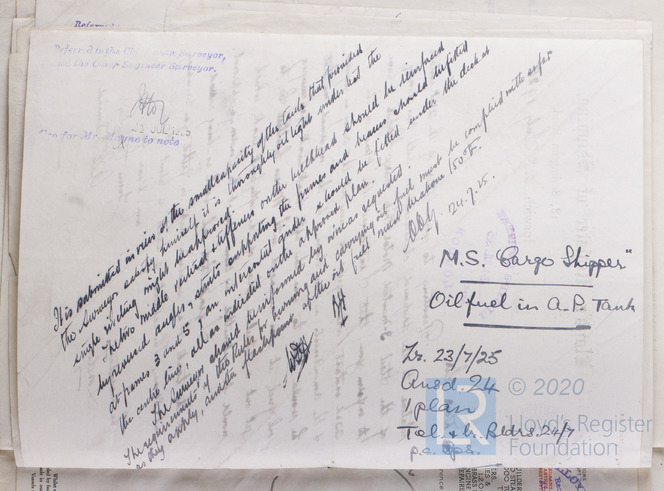 Referred to the Chief Ship Surveyor,
the Chief Engineer Surveyor.
JUL 1925
for Mr. to note
It is submitted in view of the small capacity of the tank that provided
the Surveyor satisfy himself it is thoroughly oil tight under test the
single riveting might be approved.
The two middle vertical stiffeners on the bulkhead should be reinforced
by reversed angles, struts supporting the frames and beams should be fitted
at frames 3 and 5 & an intercostal girder should be fitted under the deck at
the centre line, all as indicated on the approved plan.
The Surveyor should be informed by wire as requested.
The requirements of the Rules for burning and carrying oil fuel must be complied with so far
as they apply, and the flashpoint of the oil fuel must be above 150°F.
24.7.25.
M.S. "Cargo Shipper"
Oil fuel in A.P. Tank
Lr. 23/7/25
Ansd 24
1 plan
Tel. & lr. Bldrs. 24/7
© 2020
Lloyd's Register
Foundation